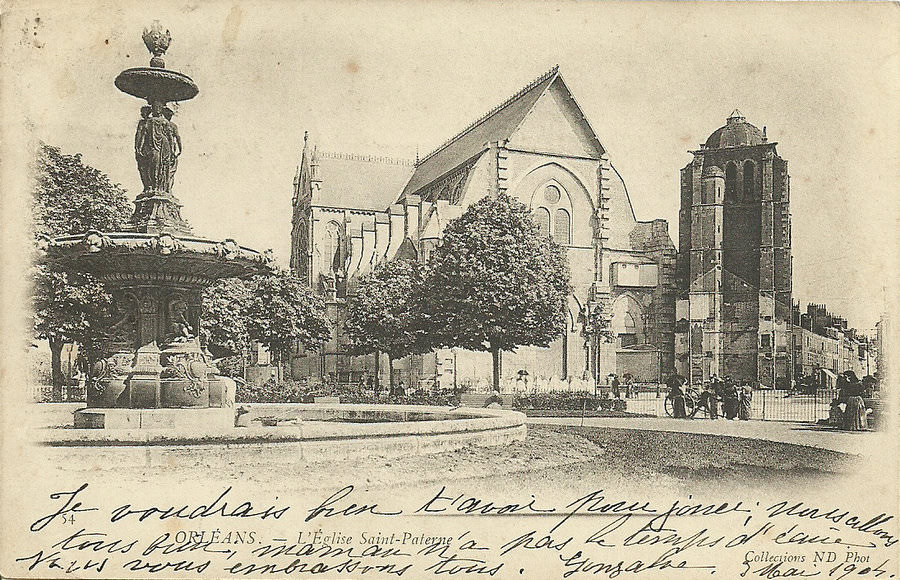 Je voudrais bien t'avoir pour jouer; nous allons
54
ORLÉANS. — L'Église Saint-Paterne
tous bien, maman n'a pas le temps d'écrire
Collections ND Phot
Nous vous embrassons tous. Gonzalve. 3 Mai 1904.